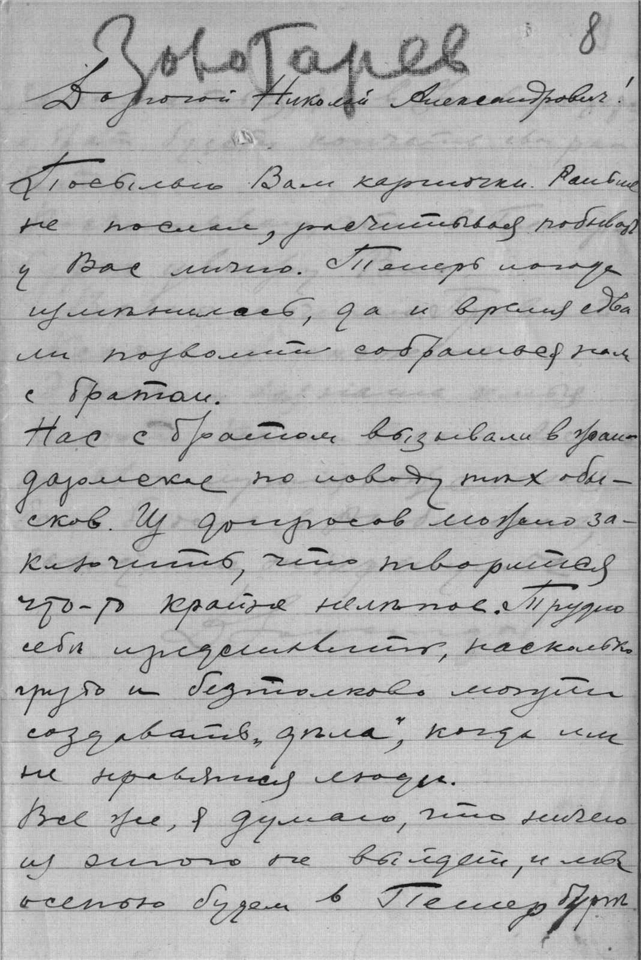 Золотарев 8
Дорогой Николай Александрович!
Посылаю Вам карточки. Раньше
не послал, расчитывая побывать
у Вас лично. Теперь погода
измѣнилась, да и время едва
ли позволит собраться нам
с братом.
Нас с братом вызывали в жан-
дармское по поводу тѣх обы-
сков. Из допросов можно за-
ключить, что творится
что-то крайне нелѣпое. Трудно
себѣ представить, насколько
грубо и безтолково могут
создавать „дѣла“, когда им
не нравятся люди.
Все же, я думаю, что ничего
из этого не выйдет, и мы
осенью будем в Петербургѣ